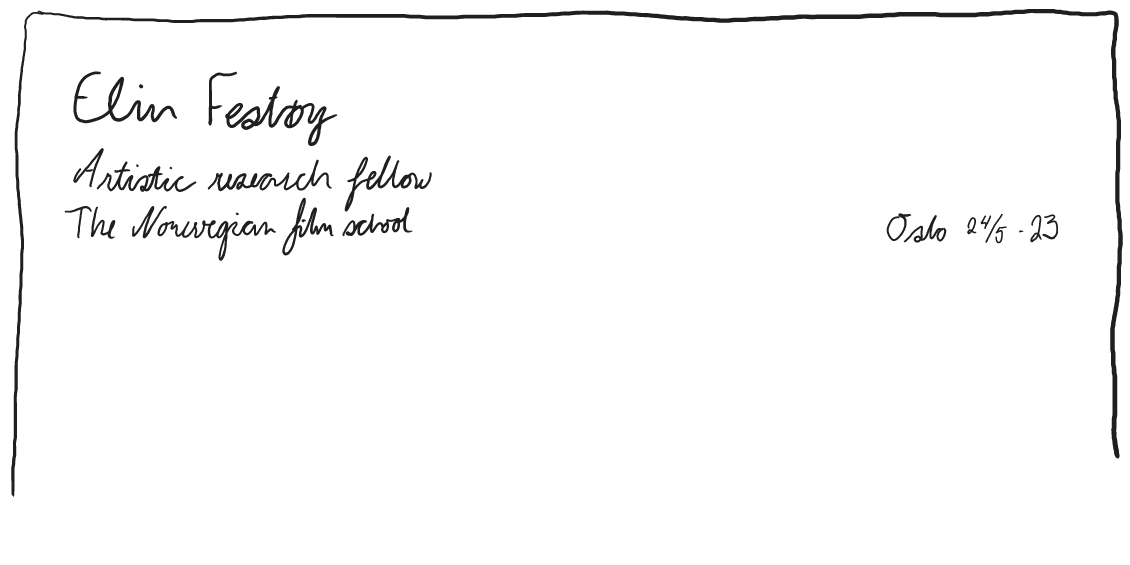 Elin Festøy
Artistic research fellow
The Norwegian film school
Oslo 24/5 - 23